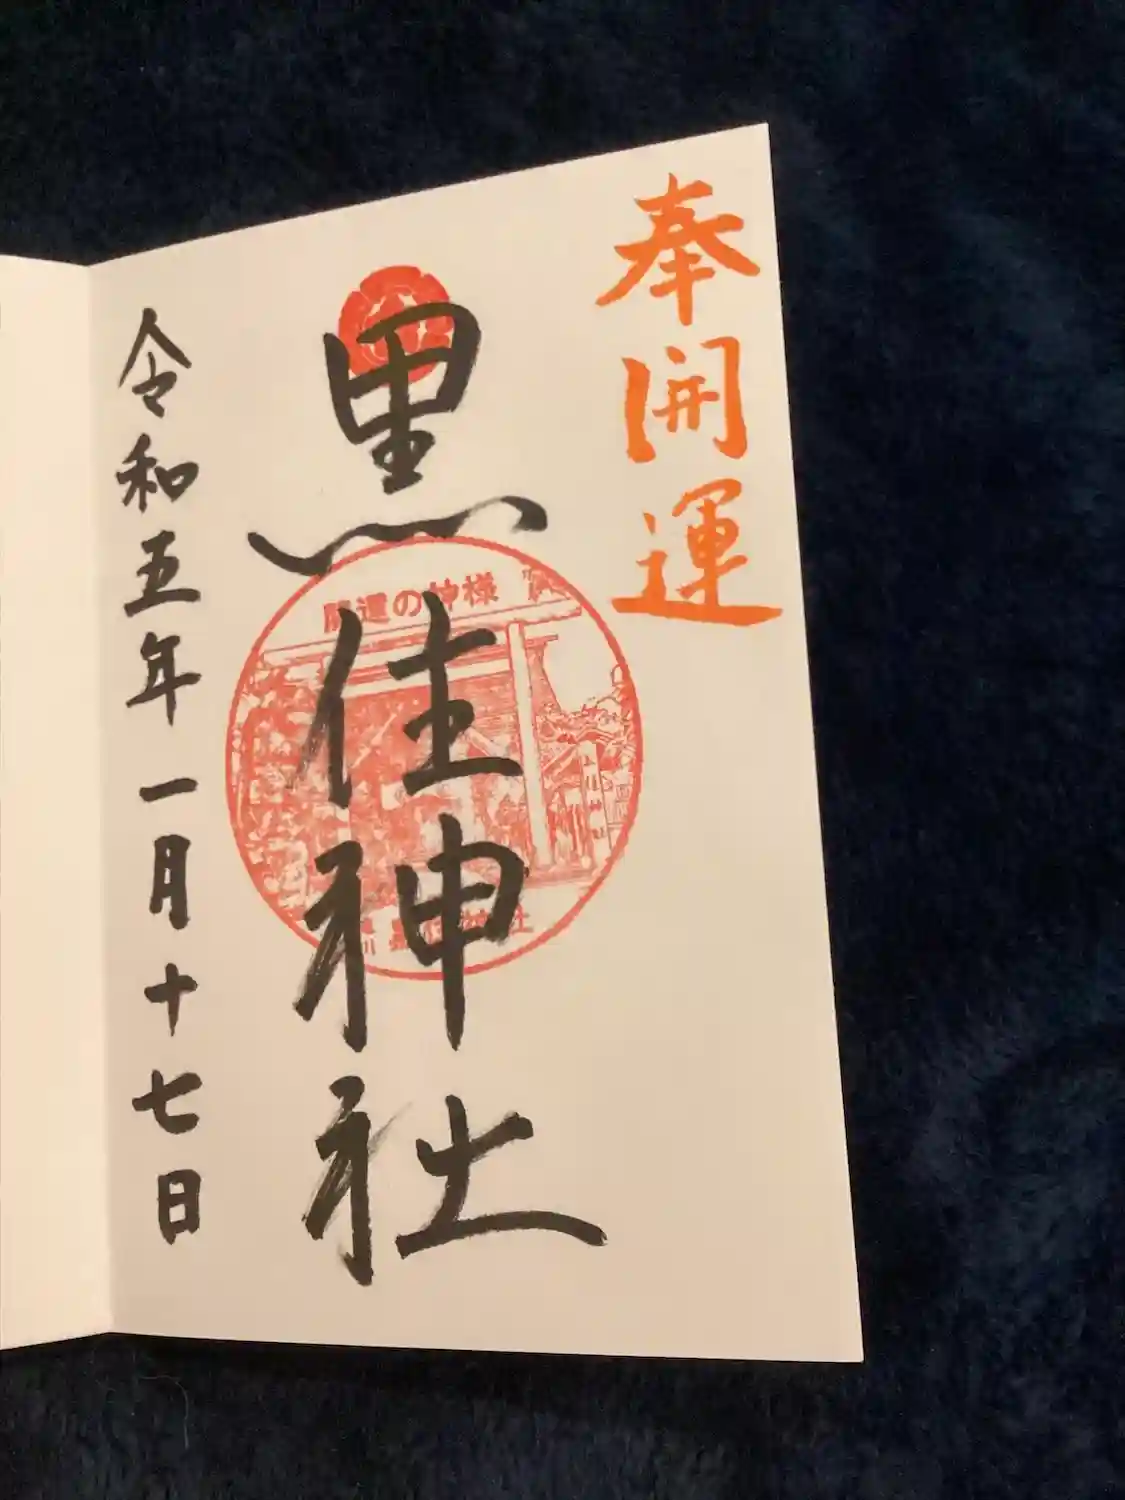 奉開運
黒住神社
開運の神様
黒住神社
令和五年一月十七日